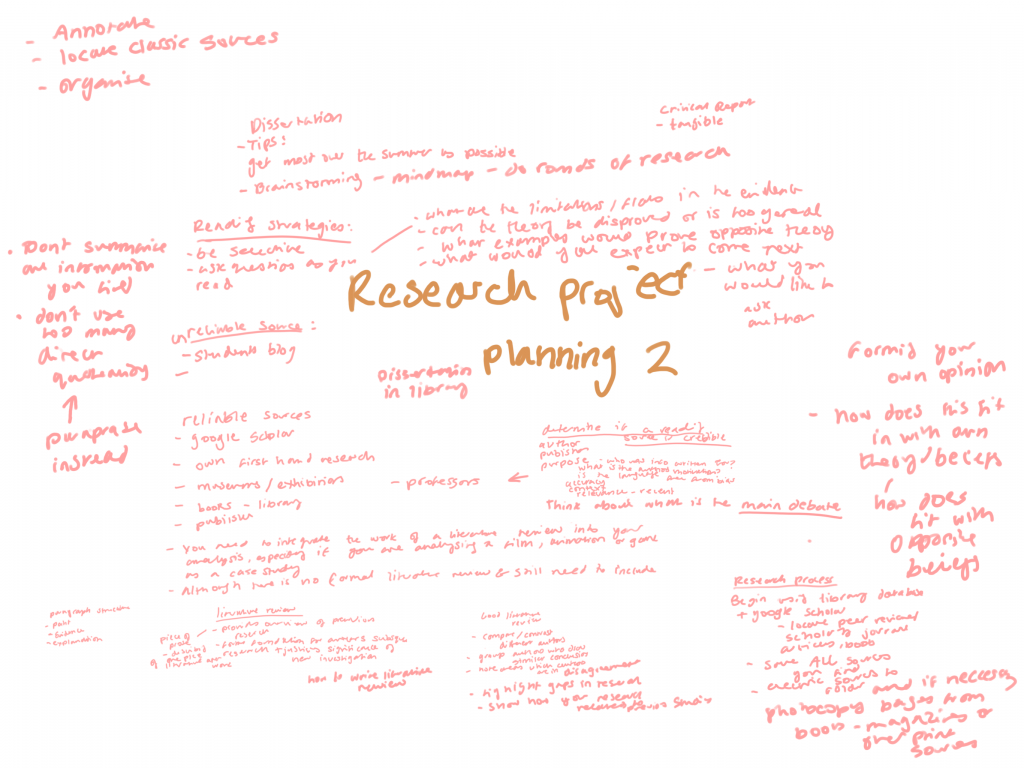 - Annotate
- locate classic sources
- organise
Dissertation
- Tips:
get most over the summer as possible
- Brainstorming - mindmap - do rounds of research
Critical Report
- tangible
Reading strategies:
- be selective
- ask questions as you
read
- what are the limitations/flaws in the evidence
- can the theory be disproved or is too general
- what examples would prove opposite theory
- what would you expect to come next
- what you
would like to
ask
author
• Dont summarise
all information
you find
• don't use
too many
direct
paraprase
instead
Research project
planning 2
unreliable source:
- students blog
-
Dissertation
in library
reliable sources
- google scholar
- own first hand research
- museums/exhibition
- books - library
- publisher
- professors
determine if a reading
source is credible
author
publisher
purpose - who was into written for?
what is the authors motivation?
is the language free from bias
accuracy
content
relevance - recent
Think about what is the main debate
Forming your
own opinion
- how does this fit
in with own
theory/beliefs
how does
fit with
opposite
beliefs
- You need to integrate the work of a literature review into your
analysis, especially if you are analysing a film, animation or game
as a case study
- Although there is no formal literature review & still need to include
paragraph structure
- point
- evidence
- explanation
literature review
- provides overview of previous
research
- forms foundation for authors
research + justifies significance of
new investigation
how to write literature
review
Good literature
review
- compare/contrast
different authors
- group authors who draw
similar conclusions
- note areas which authors
are in disagreement
- highlight gaps in research
- show how your research
relates to previous studies
Research process
Begin using library database
+ google scholar
- locate peer reviewed
scholarly journal
articles, books
- save All sources
you find
- electric sources to
folder and if necessary
photocopy pages from
books - magazines or
other print
sources